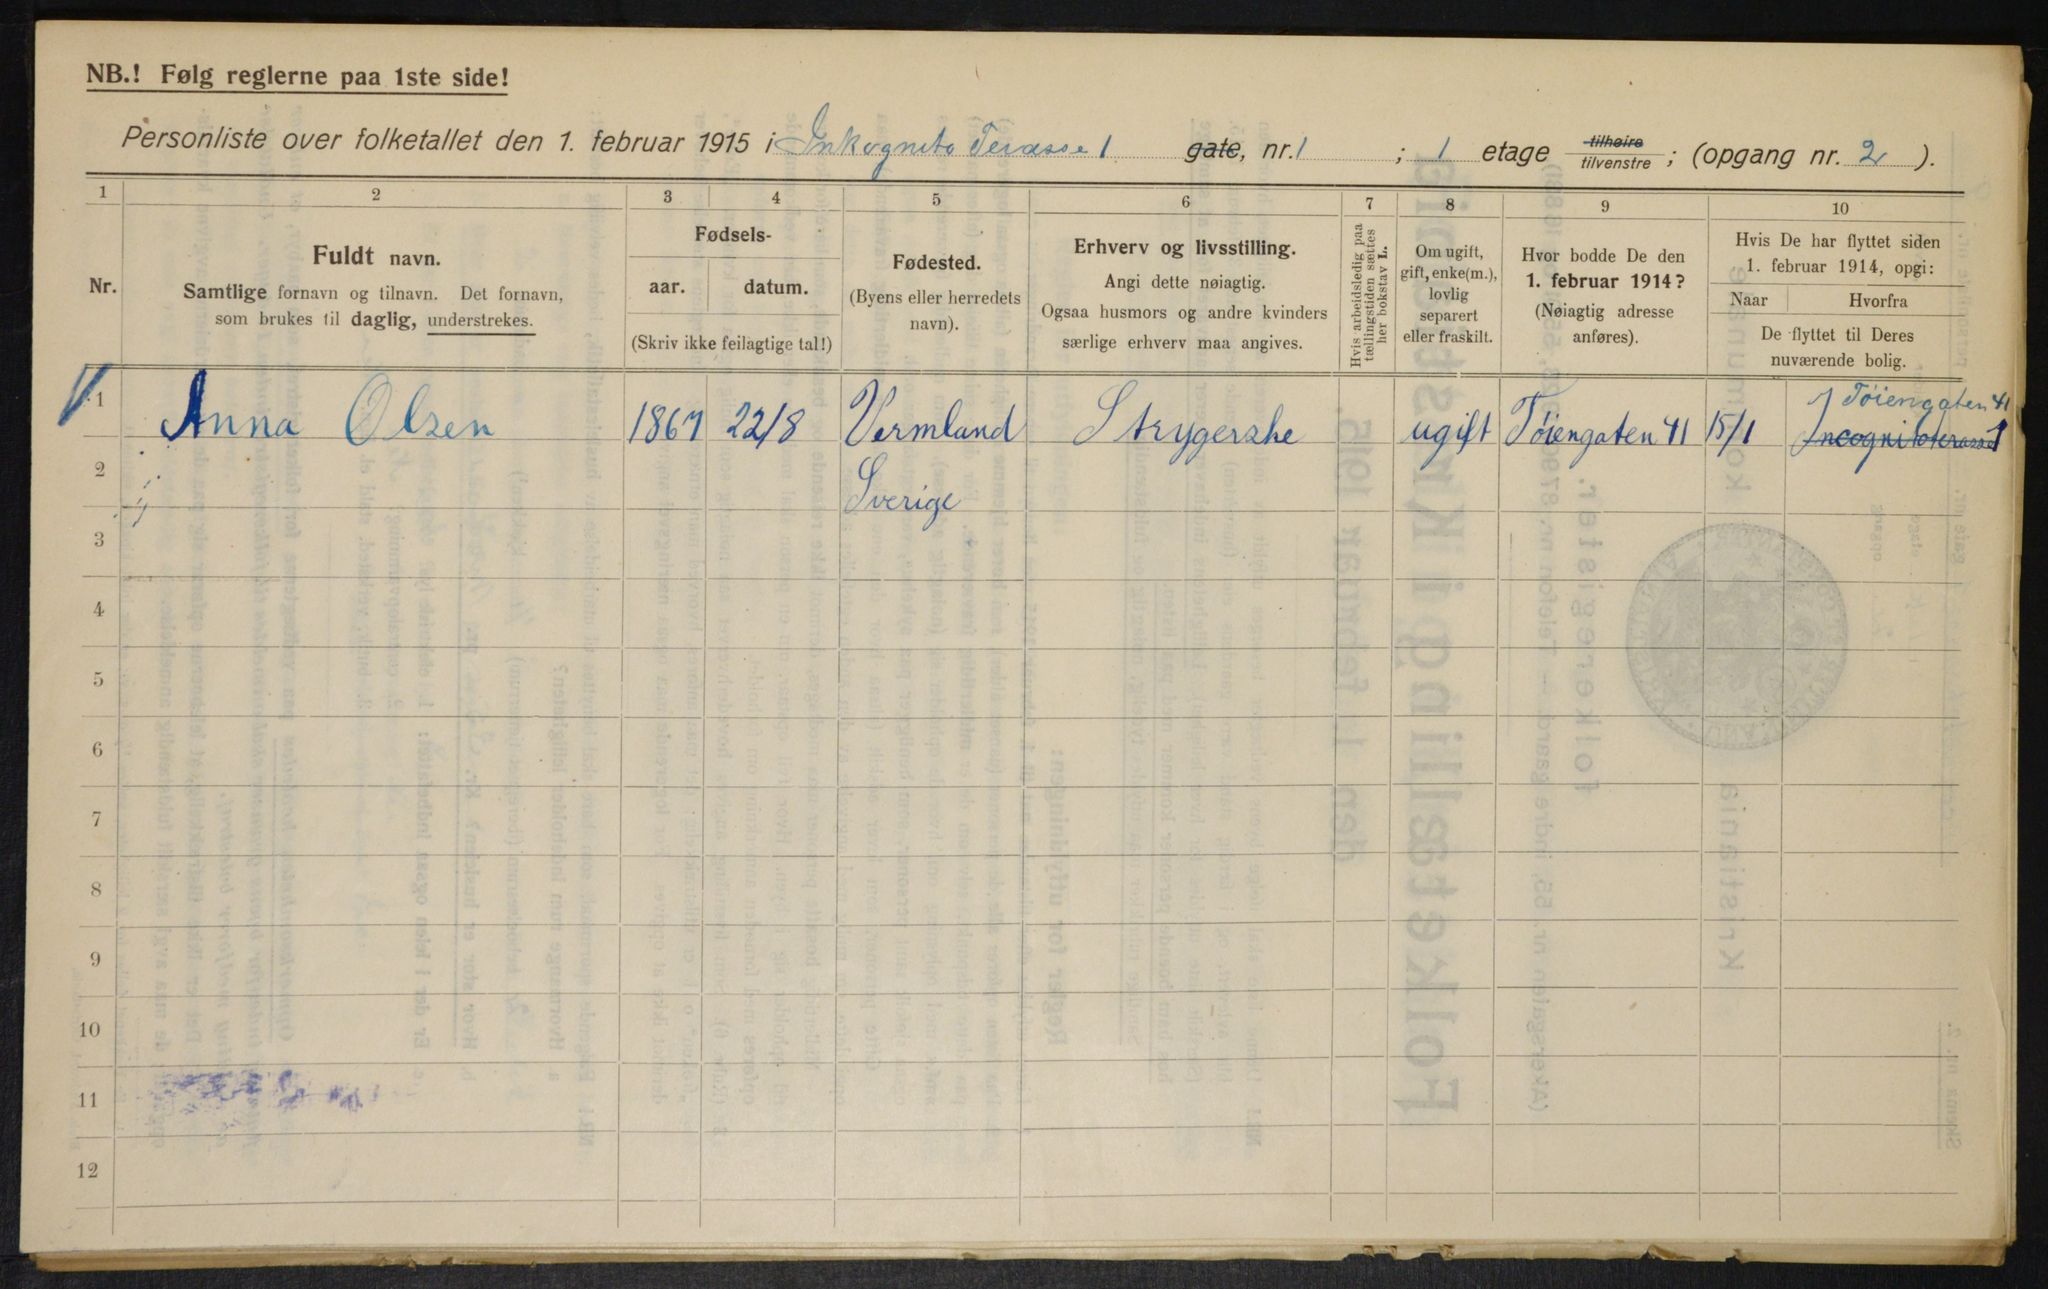 NB.! Følg reglerne paa 1ste side!
Personliste over folketallet den 1. februar 1915 i Inkognito Terasse 1 gate, nr. 1 ; 1 etage tilhøire tilvenstre ; (opgang nr. 2 ).
1 2 3 4 5 6 7 8 9 10
Nr.
Fuldt navn.
Samtlige fornavn og tilnavn. Det fornavn,
som brukes til daglig, understrekes.
Fødsels-
aar. datum.
(Skriv ikke feilagtige tal!)
Fødested.
(Byens eller herredets
navn).
Erhverv og livsstilling.
Angi dette nøiagtig.
Ogsaa husmors og andre kvinders
særlige erhverv maa angives.
Hvis arbeidsledig paa
tællingstiden sættes
her bokstav L.
Om ugift,
gift, enke(m.),
lovlig
separert
eller fraskilt.
Hvor bodde De den
1. februar 1914?
(Nøiagtig adresse
anføres).
Hvis De har flyttet siden
1. februar 1914, opgi:
Naar Hvorfra
De flyttet til Deres
nuværende bolig.
Tøiengaten 41
1 Anna Olsen 1867 22/8 Vermland Strygerske ugift Tøiengaten 41 15/1 Incognitoterasse 1
2 Sverige
3
4
5
6
7
8
9
10
11
12